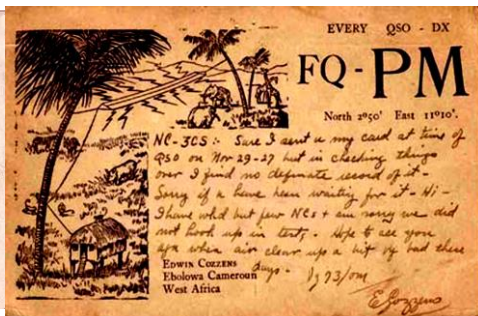 EVERY QSO - DX
FQ-PM
North 2°50' East 11°10'.
NC-3CS :- Sure I sent u my card at time of
QSO on Nov 29-27 but in checking things
over I find no definate record of it -
Sorry if u have been waiting for it - Hi -
I have wkd but few NCs + am sorry we did
not hook up in tests. - Hope to see you
agn when air clears up a bit vy bad these
days - Vy 73/om
EDWIN COZZENS
Ebolowa Cameroun
West Africa
E Cozzens